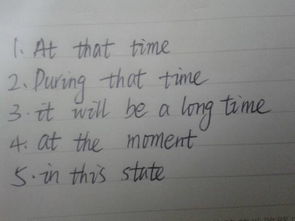 1. At that time
2. During that time
3. it will be a long time
4. at the moment
5. in this state